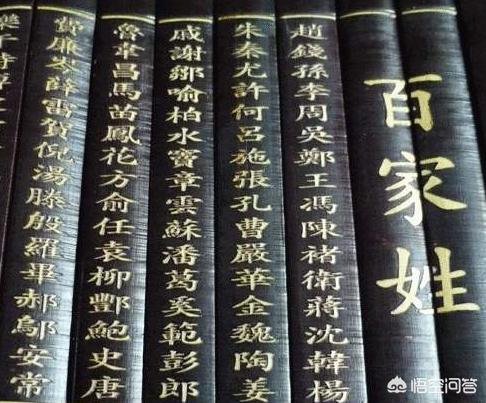 百家姓
趙錢孫李周吳鄭王馮陳褚衛蔣沈韓楊
朱秦尤許何呂施張孔曹嚴華金魏陶姜
戚謝鄒喻柏水竇章雲蘇潘葛奚範彭郎
魯韋昌馬苗鳳花方俞任袁柳酆鮑史唐
費廉岑薛雷賀倪湯滕殷羅畢郝鄔安常
悟空问答